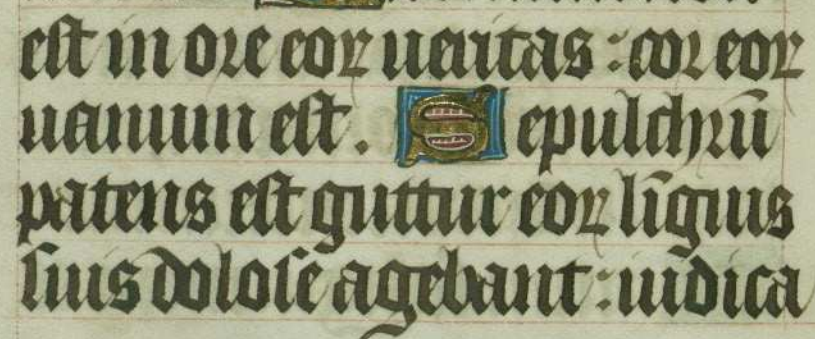 est in ore eoꝝ ueritas : cor eoꝝ
uanum est . Sepulchrū
patens est guttur eoꝝ līguis
suis dolose agebant : iudica